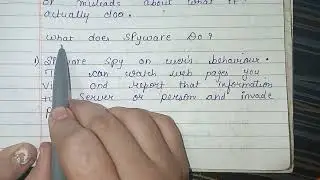 or misleads about what it
actually doo.
What does Spyware Do?
1) Spyware Spy on user's behaviour.
can watch web pages you
and report that information
Server or person and invade